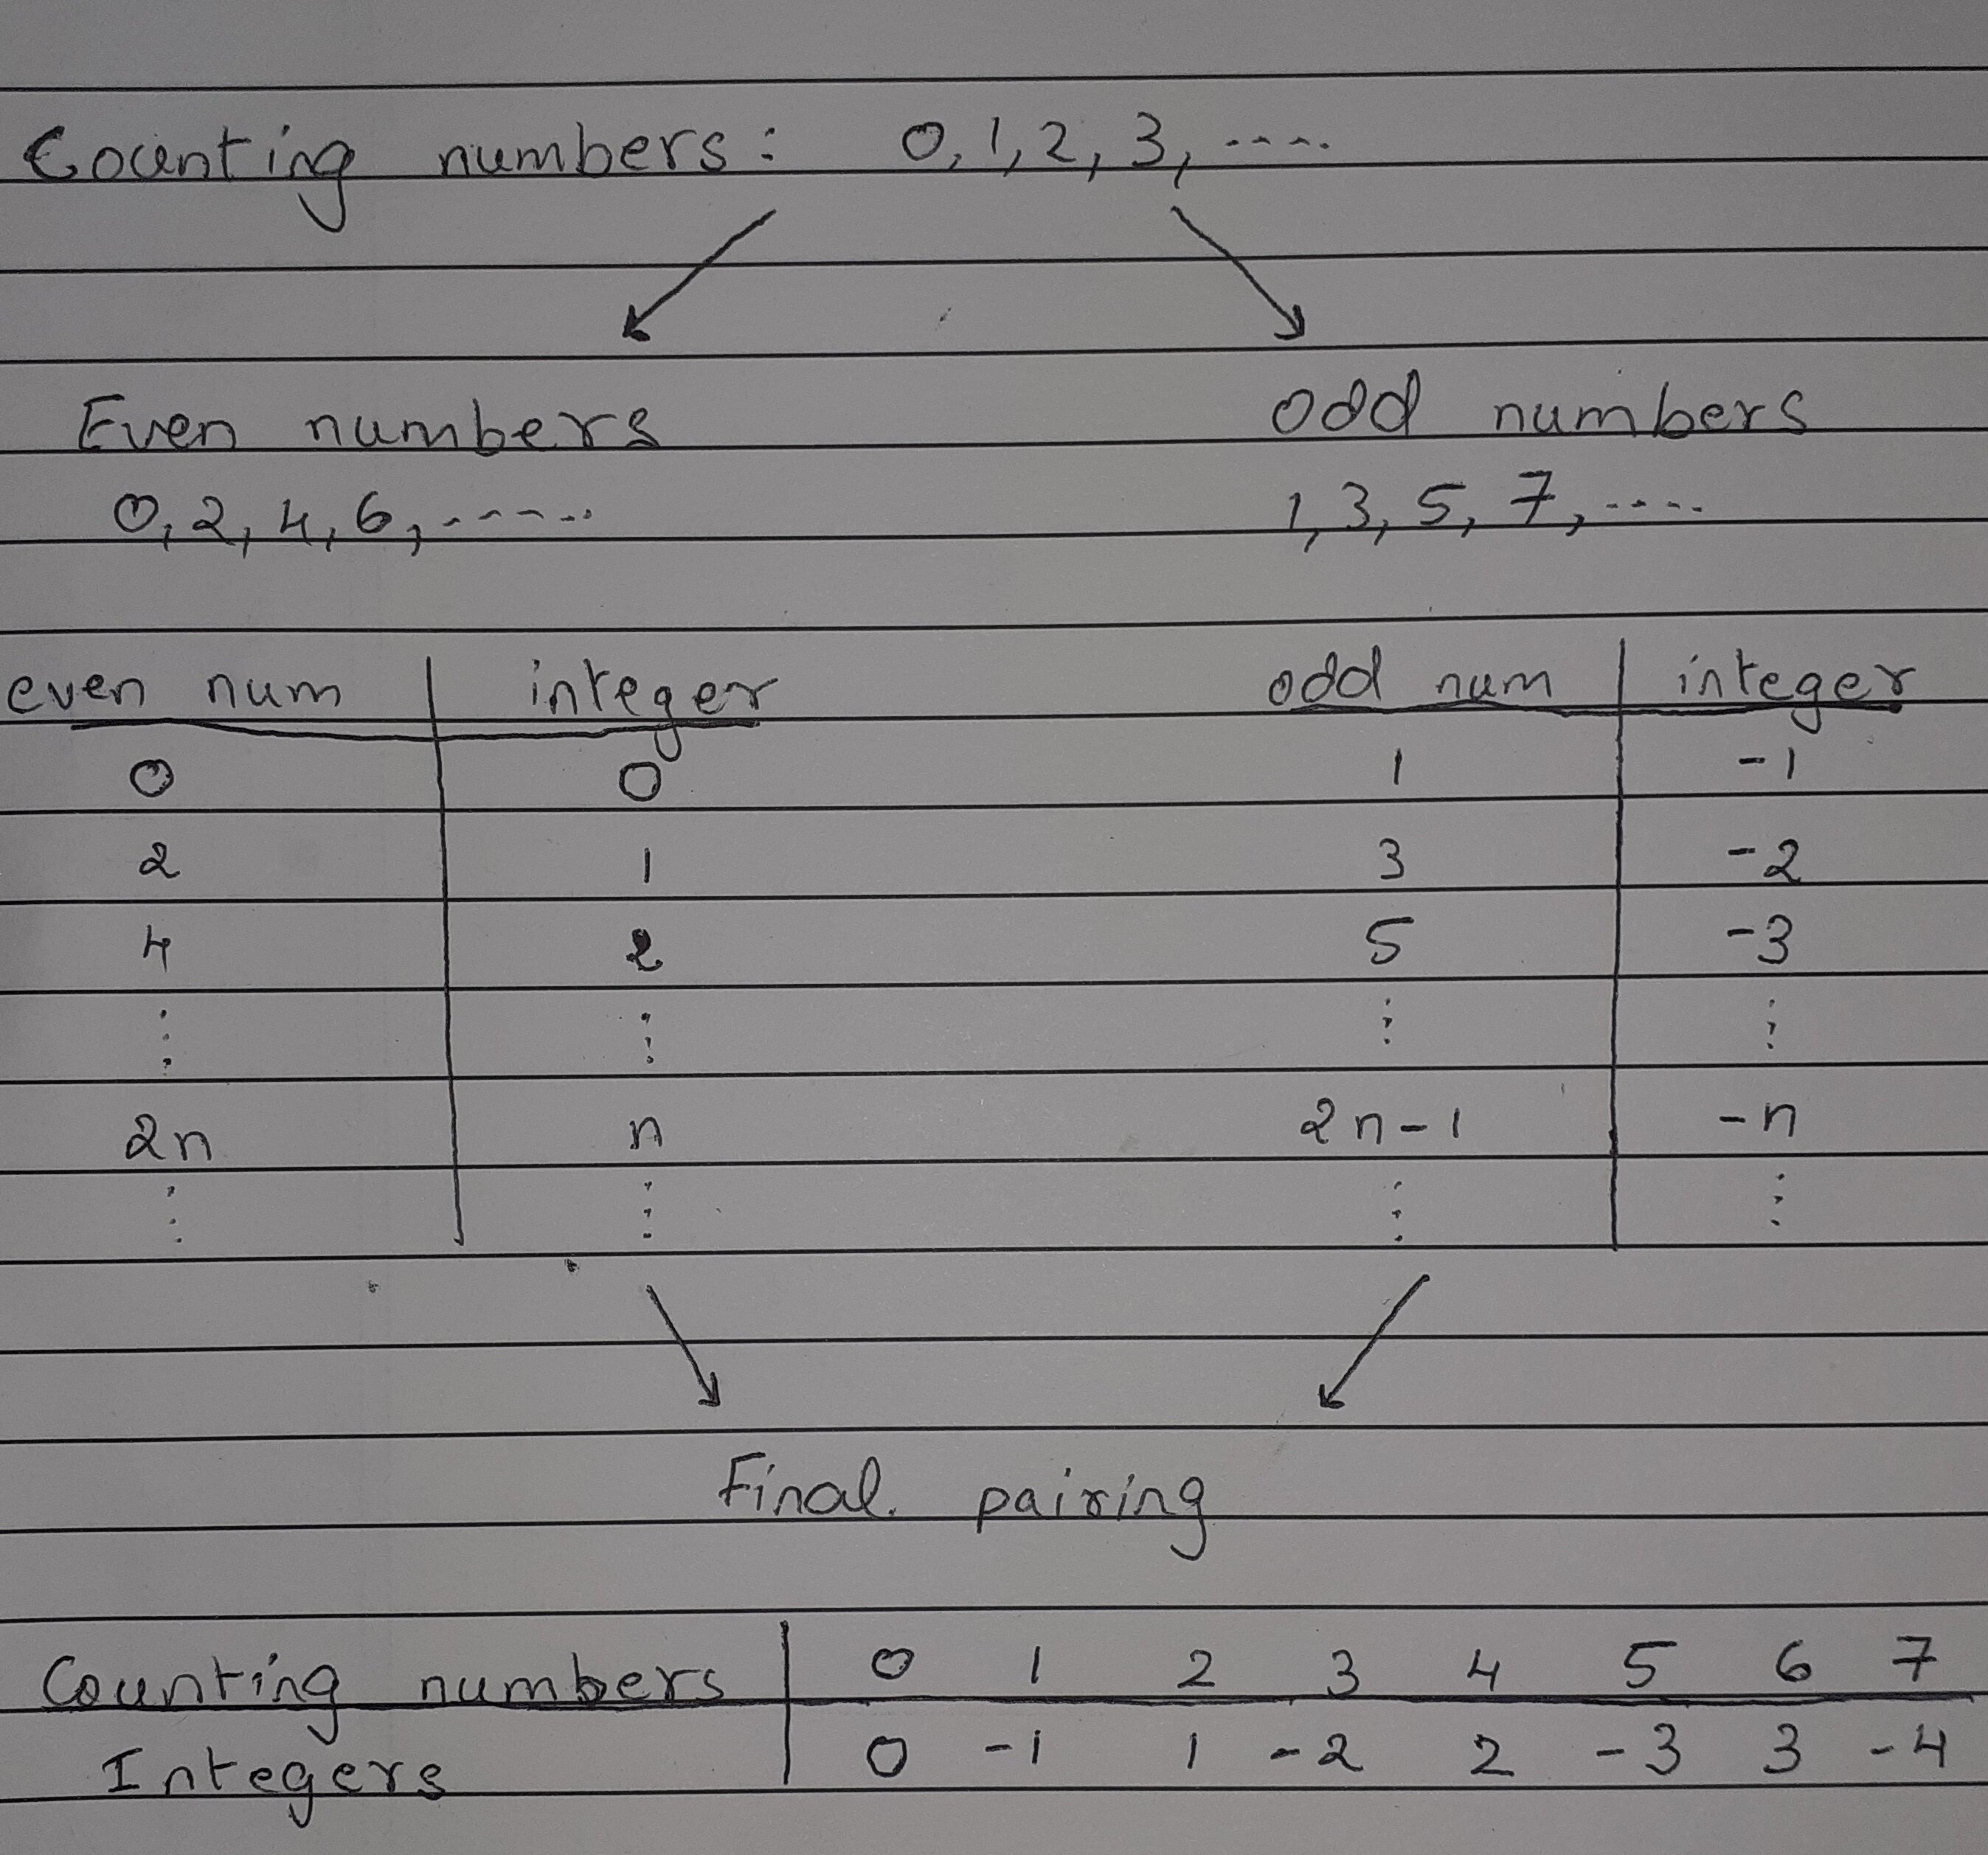 Counting numbers: 0, 1, 2, 3, ....
Even numbers
0, 2, 4, 6, .....
odd numbers
1, 3, 5, 7, ....
even num | integer
0 | 0
2 | 1
4 | 2
⋮ | ⋮
2n | n
⋮ | ⋮
odd num | integer
1 | -1
3 | -2
5 | -3
⋮ | ⋮
2n-1 | -n
⋮ | ⋮
Final pairing
Counting numbers | 0 1 2 3 4 5 6 7
Integers | 0 -1 1 -2 2 -3 3 -4